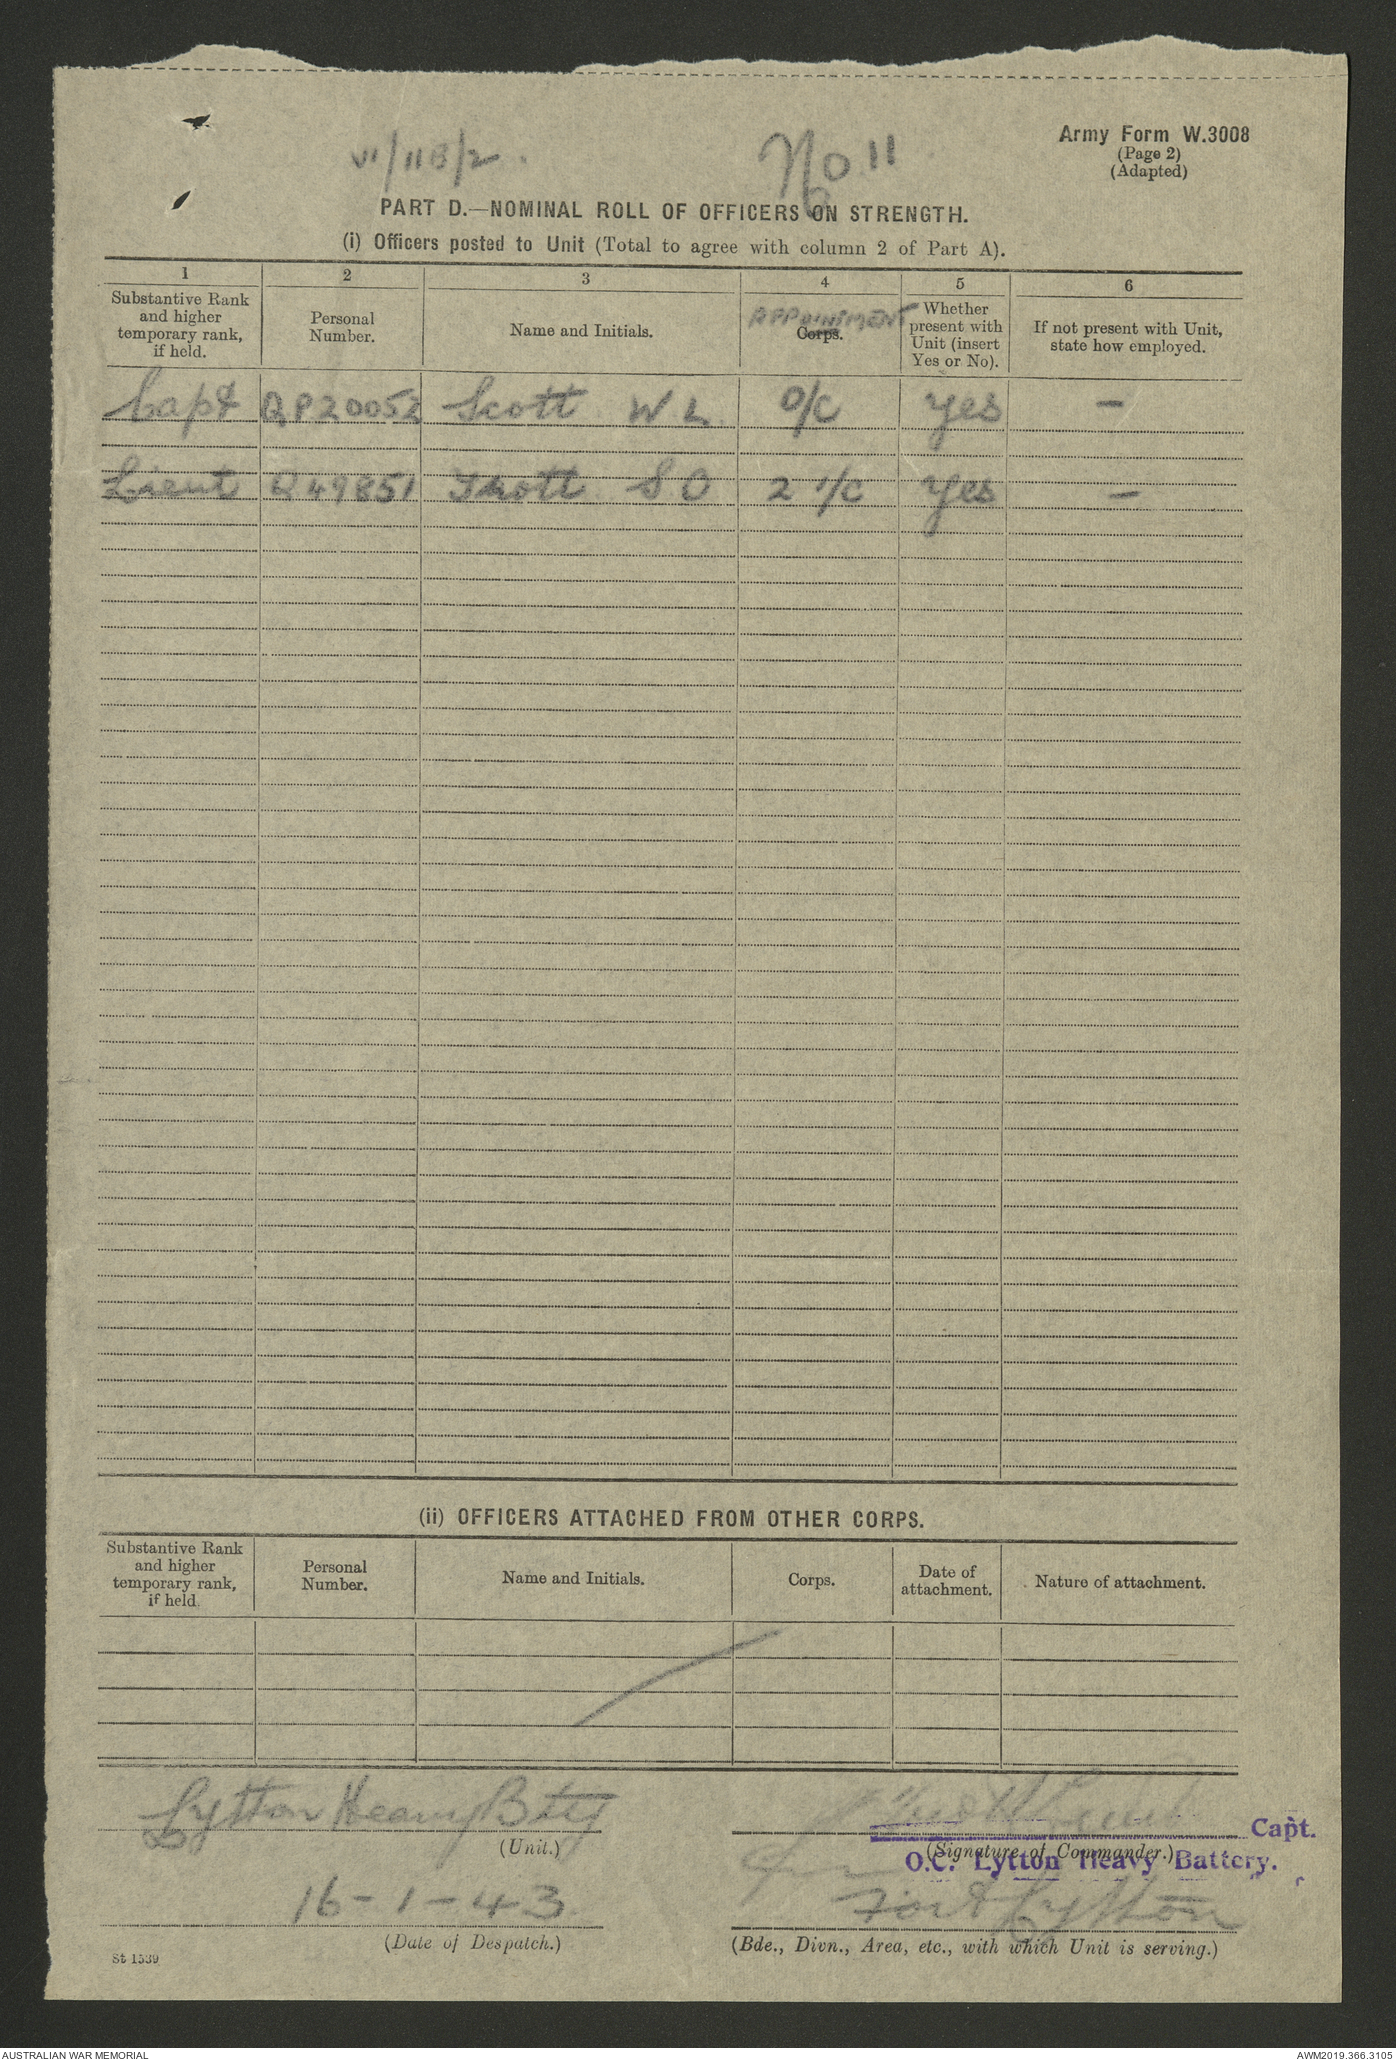 VI/IIB/2.
No 11
Army Form W.3008
(Page 2)
(Adapted)
PART D.—NOMINAL ROLL OF OFFICERS ON STRENGTH.
(i) Officers posted to Unit (Total to agree with column 2 of Part A).
1 2 3 4 5 6
Substantive Rank and higher temporary rank, if held.
Personal Number.
Name and Initials.
APPOINTMENT
Corps.
Whether present with Unit (insert Yes or No).
If not present with Unit, state how employed.
Capt QP20052 Scott W L O/C Yes —
Lieut Q49851 S O 2 I/C Yes —
(ii) OFFICERS ATTACHED FROM OTHER CORPS.
Substantive Rank and higher temporary rank, if held.
Personal Number.
Name and Initials.
Corps.
Date of attachment.
Nature of attachment.
Lytton Heavy Bty
(Unit.)
Capt.
(Signature of Commander.)
O.C. Lytton Heavy Battery.
16-1-43.
(Date of Despatch.)
Fort Lytton
(Bde., Divn., Area, etc., with which Unit is serving.)
St 1539
AUSTRALIAN WAR MEMORIAL
AWM2019.366.3105